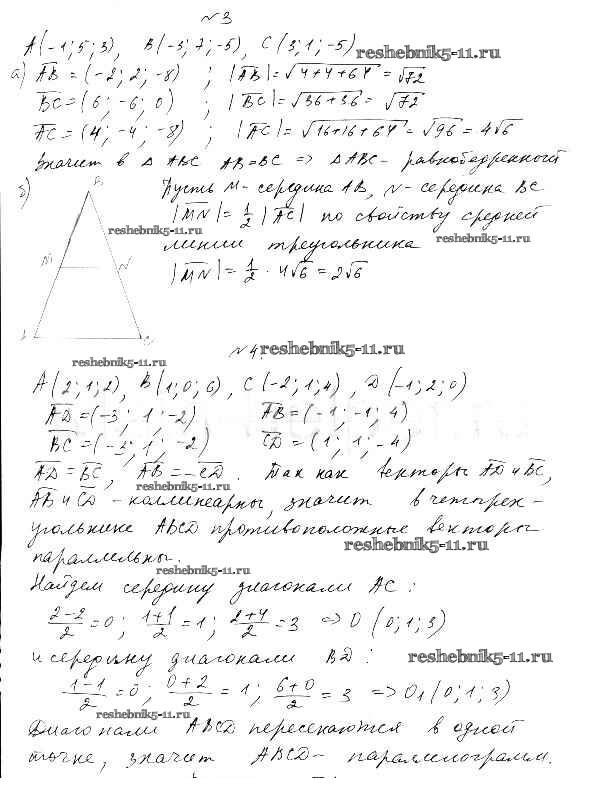 №3
A(-1;5;3), B(-3;7;-5), C(3;1;-5) reshebnik5-11.ru
а) AB=(-2;2;-8) ; |AB|=√4+4+64=√72
BC=(6;-6;0) ; |BC|=√36+36=√72
AC=(4;-4;-8) ; |AC|=√16+16+64=√96=4√6
Значит в △ABC AB=BC => △ABC- равнобедренный
б) Пусть M-середина AB, N-середина BC
B
|MN|=1/2|AC| по свойству средней
reshebnik5-11.ru
линии треугольника reshebnik5-11.ru
M N
|MN|=1/2·4√6=2√6
A C
№4 reshebnik5-11.ru
reshebnik5-11.ru
A(2;1;2), B(1;0;6), C(-2;1;4), D(-1;2;0)
AD=(-3;1;-2) AB=(-1;-1;4)
BC=(-3;1;-2) CD=(1;1;-4)
AD=BC, AB=-CD. Так как векторы AD и BC,
reshebnik5-11.ru
AB и CD - коллинеарны, значит в четырех-
угольнике ABCD противоположные векторы
параллельны. reshebnik5-11.ru
reshebnik5-11.ru
Найдем середину диагонали AC:
2-2/2=0; 1+1/2=1; 2+4/2=3 => O(0;1;3)
и середину диагонали BD: reshebnik5-11.ru
1-1/2=0; 0+2/2=1; 6+0/2=3 => O1(0;1;3)
reshebnik5-11.ru
Диагонали ABCD пересекаются в одной
точке, значит ABCD- параллелограмм.